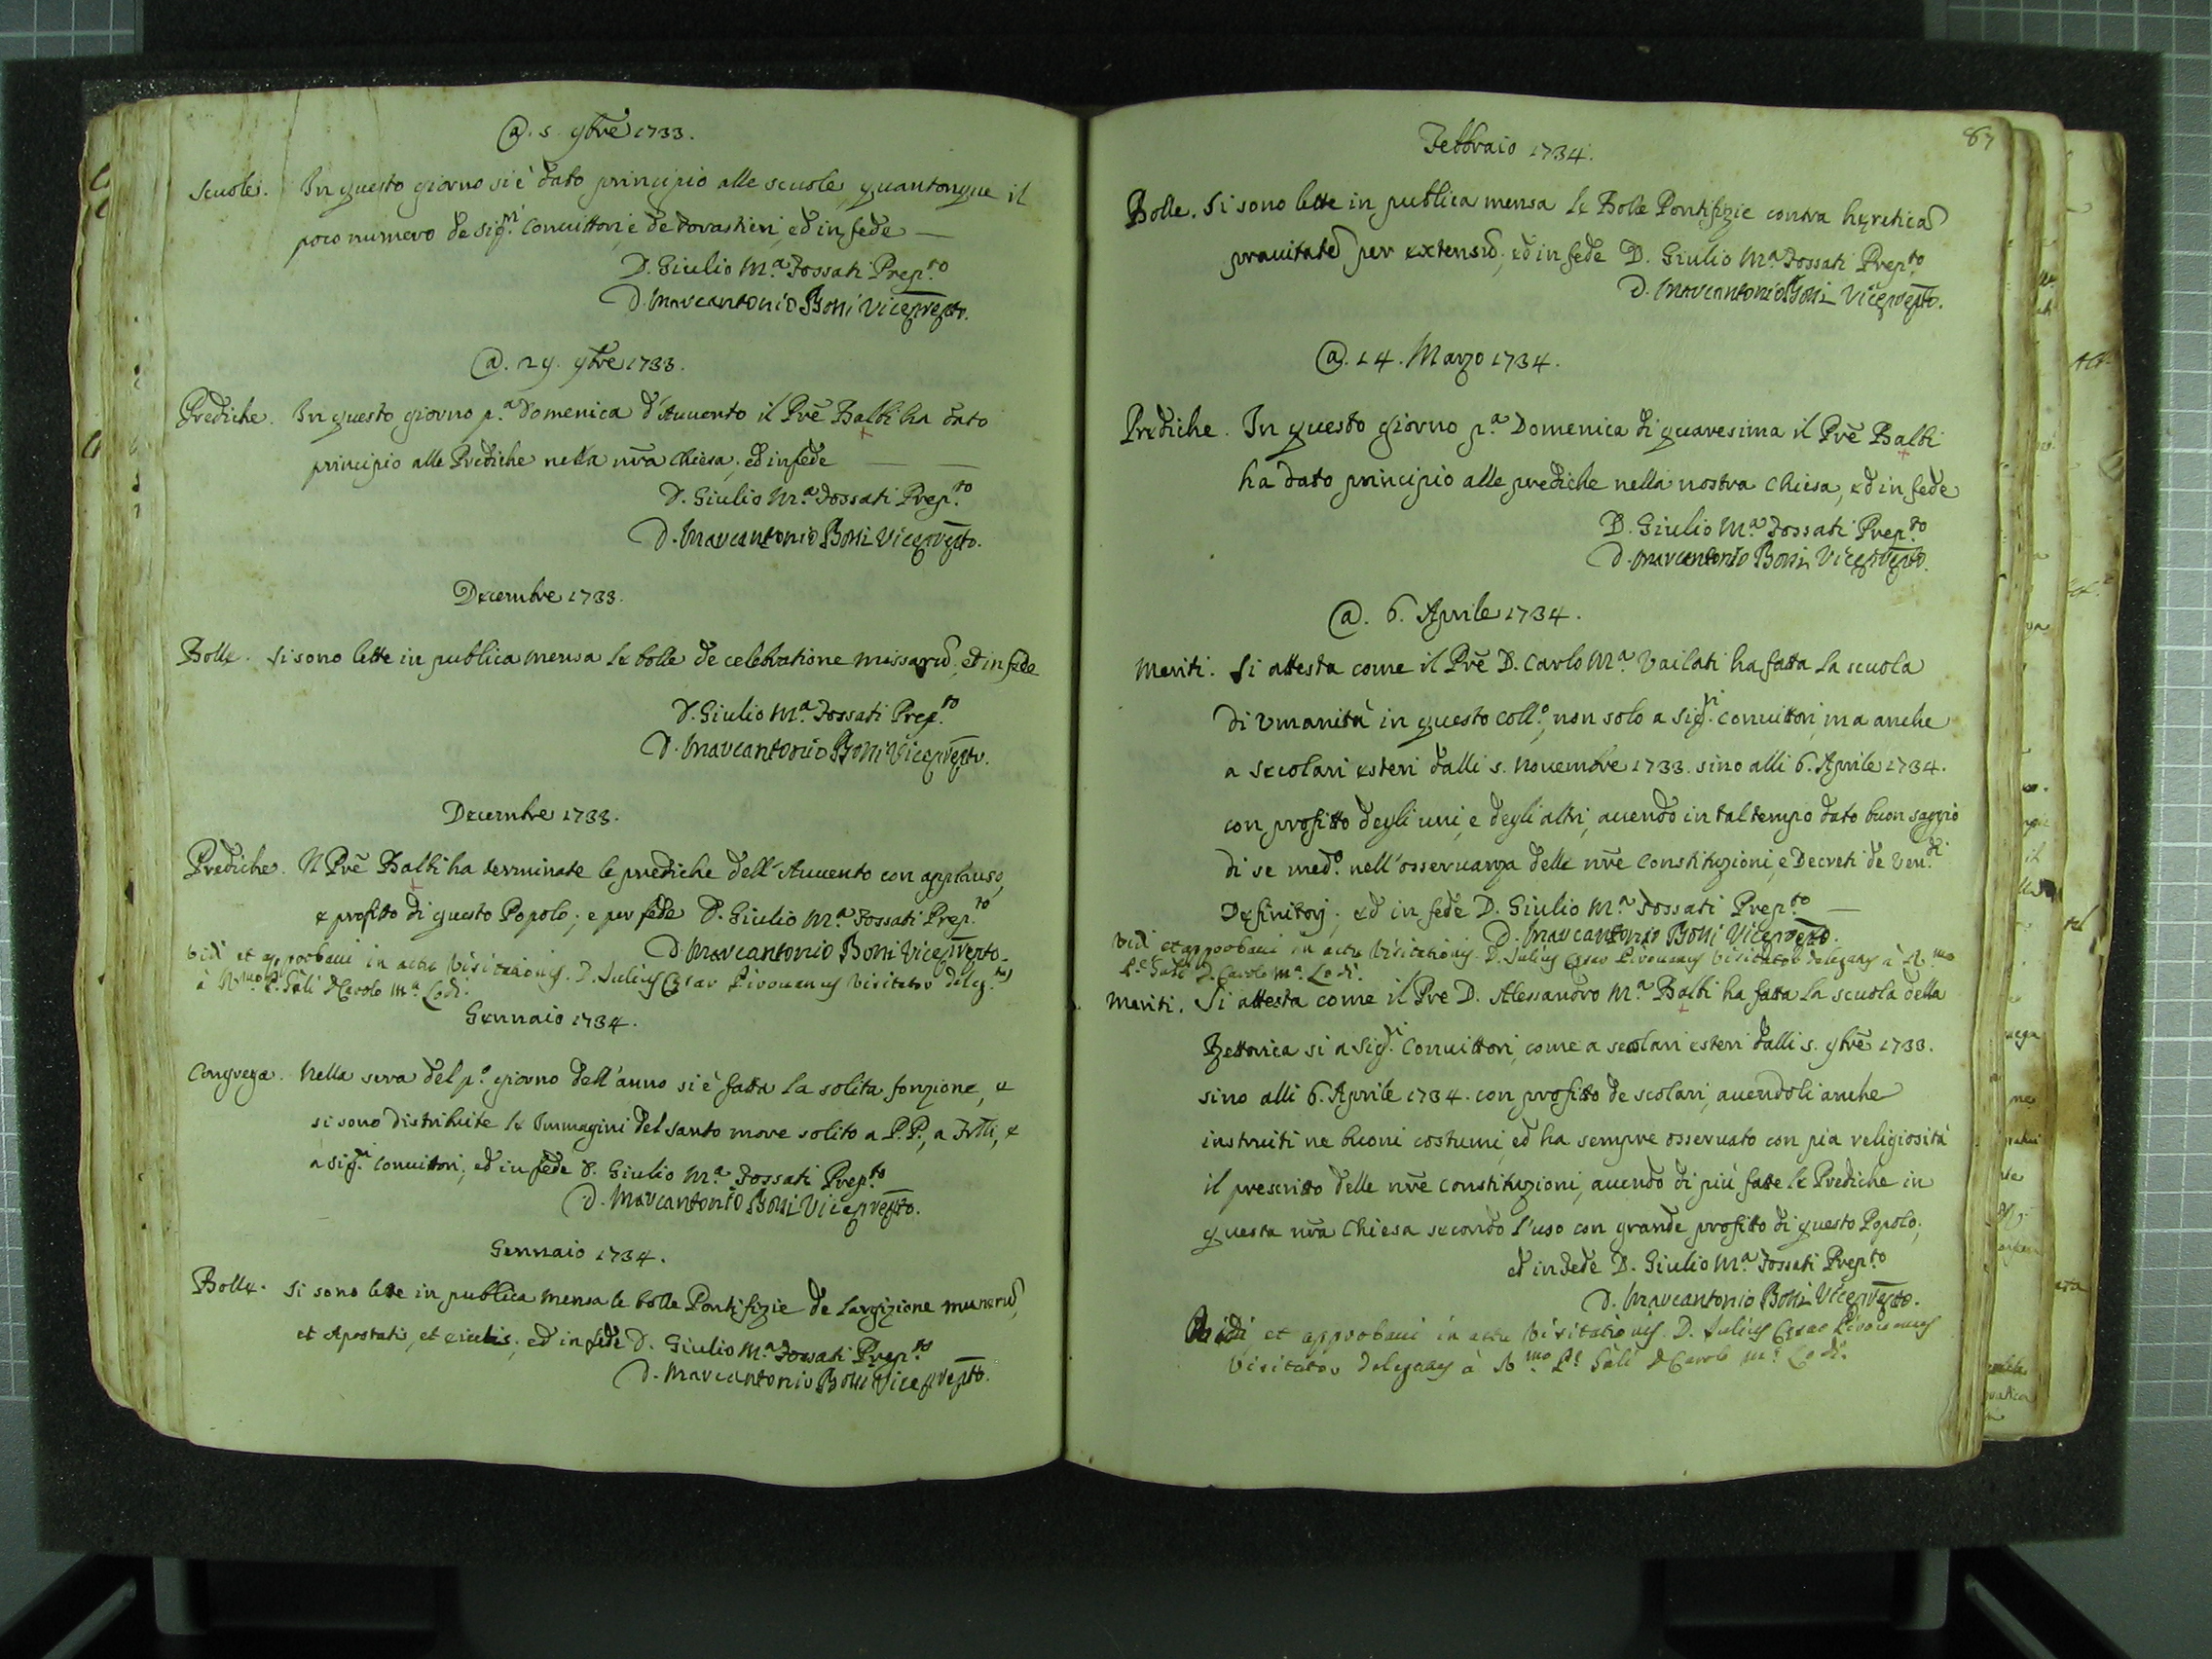 @. 5. 9bre 1733.
Scuole. In questo giorno si è dato principio alle scuole, quantonque il
poco numero de Sig.ri Convittori, e de Forastieri, ed in fede —
D. Giulio M.a Fossati Prep.to
D. Marcantonio Boni Viceprepto.
@. 29. 9bre 1733.
Prediche. In questo giorno p.a Domenica d'Avvento il Pre Balbi ha dato
principio alle Prediche nella nra Chiesa, ed in fede — —
D. Giulio M.a Fossati Prep.to
D. Marcantonio Boni Viceprepto.
Decembre 1733.
Bolle. Si sono lette in publica mensa le bolle de celebratione missarũ, ed in fede
D. Giulio M.a Fossati Prep.to
D. Marcantonio Boni Viceprepto.
Decembre 1733.
Prediche. Il Pre Balbi ha terminate le prediche dell'Avvento con applauso,
e profitto di questo Popolo; e per fede D. Giulio M.a Fossati Prep.to
D. Marcantonio Boni Viceprepto.
Vidi et approbavi in actu Visitationis. D. Julius Cęsar Pirovanus Visitator deleg.tus
à R.mo P. Gũli D Carolo M.a Lodi.
Gennaio 1734.
Congrega. Nella sera del p.o giorno dell'anno si è fatta la solita fonzione, e
si sono distribuite le Immagini del Santo more solito a P.P., a Frtlli, e
a Sig.ri Convittori, ed in fede D. Giulio M.a Fossati Prep.to
D. Marcantonio Boni Viceprepto.
Gennaio 1734.
Bolle. Si sono lette in publica mensa le bolle Pontifizie de Largizione munerũ,
et Apostatis, et eiectis, ed in fede D. Giulio M.a Fossati Prep.to
D. Marcantonio Boni Viceprepto.
87
Febbraio 1734.
Bolle. Si sono lette in publica mensa le Bolle Pontifizie contra hęreticã
pravitatẽ per extensũ, ed in fede D. Giulio M.a Fossati Prep.to
D. Marcantonio Boni Viceprepto.
@. 14. Marzo 1734.
Prediche. In questo giorno p.a Domenica di quaresima il Pre Balbi
ha dato principio alle prediche nella nostra Chiesa, ed in fede
D. Giulio M.a Fossati Prep.to
D. Marcantonio Boni Viceprepto.
@. 6. Aprile 1734.
Meriti. Si attesta come il Pre D. Carlo M.a Vailati ha fatta la scuola
di Umanità in questo Coll.o, non solo a Sig.ri Convittori, ma anche
a Secolari esteri dalli 5. Novembre 1733. sino alli 6. Aprile 1734.
con profitto degli uni, e degli altri, avendo in tal tempo dato buon saggio
di se med.o nell'osservanza delle nre Constituzioni, e Decreti de Ven.di
Definitorj, ed in fede D. Giulio M.a Fossati Prep.to —
D. Marcantonio Boni Viceprepto.
Vidi et approbavi in actu Visitationis. D. Julius Cęsar Pirovanus Visitator delegatus à R.mo
P.e Gũli D. Carolo M.a Lodi.
Meriti. Si attesta come il Pre D. Alessandro M.a Balbi ha fatta la scuola della
Rettorica si a Sig.ri Convittori, come a secolari esteri dalli 5. 9bre 1733.
sino alli 6. Aprile 1734. con profitto de scolari, avendoli anche
instruiti ne buoni costumi, ed ha sempre osservato con pia religiosità
il prescritto delle nre Constituzioni, avendo di più fatte le Prediche in
questa nra Chiesa secondo l'uso con grande profitto di questo Popolo,
ed in Fede D. Giulio M.a Fossati Prep.to
D. Marcantonio Boni Viceprepto.
Vidi, et approbavi in actu Visitationis. D. Julius Cęsar Pirovanus
Visitator delegatus à R.mo P.e Gũli D Carolo M.a Lodi.